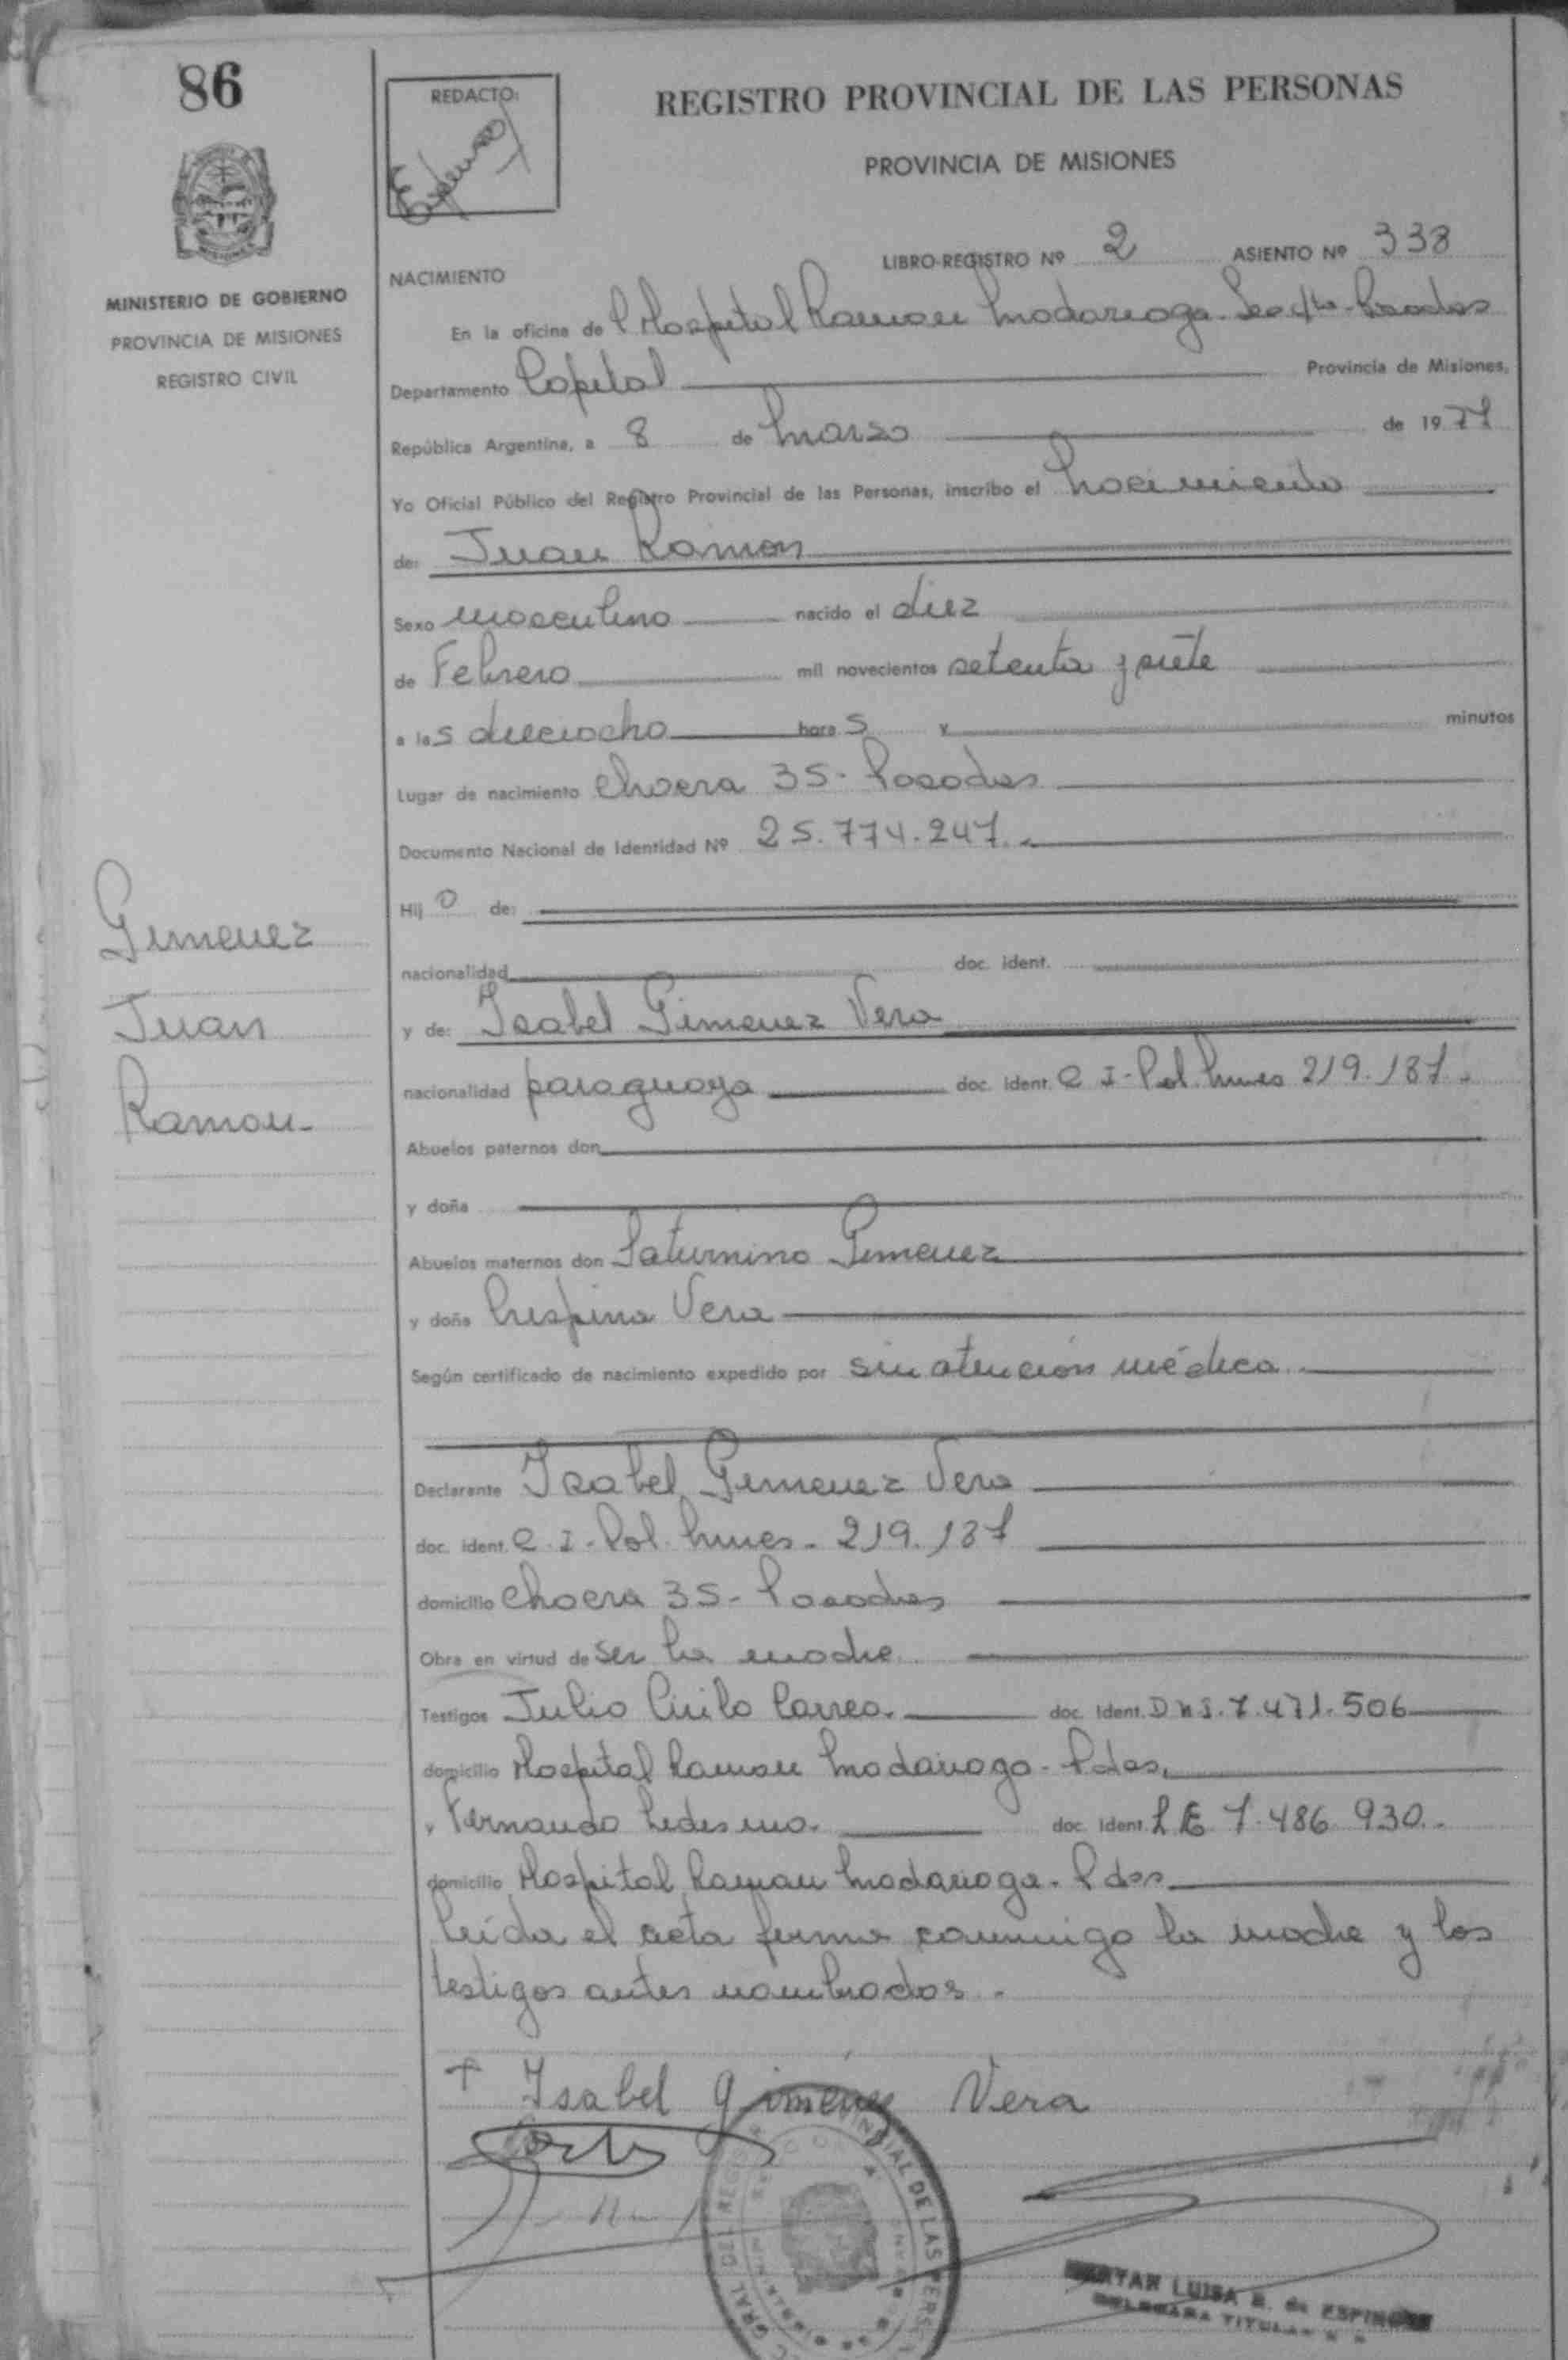 86
REDACTO:
REGISTRO PROVINCIAL DE LAS PERSONAS
PROVINCIA DE MISIONES
MINISTERIO DE GOBIERNO
PROVINCIA DE MISIONES
REGISTRO CIVIL
LIBRO-REGISTRO Nº 2 ASIENTO Nº 338
NACIMIENTO
En la oficina de Hospital Ramon Madariaga - Posadas
Departamento Capital Provincia de Misiones,
República Argentina, a 8 de Marzo de 1977
Yo Oficial Público del Registro Provincial de las Personas, inscribo el Nacimiento
de: Juan Ramon
Sexo masculino nacido el diez
de Febrero mil novecientos setenta y siete
a las dieciocho horas y minutos
Lugar de nacimiento 35 - Posadas
Documento Nacional de Identidad Nº 25.774.247.-
Hijo de:
nacionalidad doc. ident.
Gimenez
Juan
Ramon-
y de: Isabel Gimenez Vera
nacionalidad paraguaya doc. ident. C I - Pol. Mnes 219.187.
Abuelos paternos don
y doña
Abuelos maternos don Saturnino Gimenez
y doña Crispina Vera
Según certificado de nacimiento expedido por sin atención médica
Declarante Isabel Gimenez Vera
doc. ident. C. I - Pol. Mnes - 219.187
domicilio 35 - Posadas
Obra en virtud de ser la madre
Testigos Julio Cirilo doc. Ident. DNI. 7.471.506
domicilio Hospital Ramon Madariaga - Pdas.
y Fernando Ledesma. doc. Ident. L E 7.486.930.-
domicilio Hospital Ramon Madariaga - Pdas
Leida el acta firma conmigo la madre y los
testigos antes nombrados.-
+ Isabel Gimenez Vera
LUISA de
TITULAR